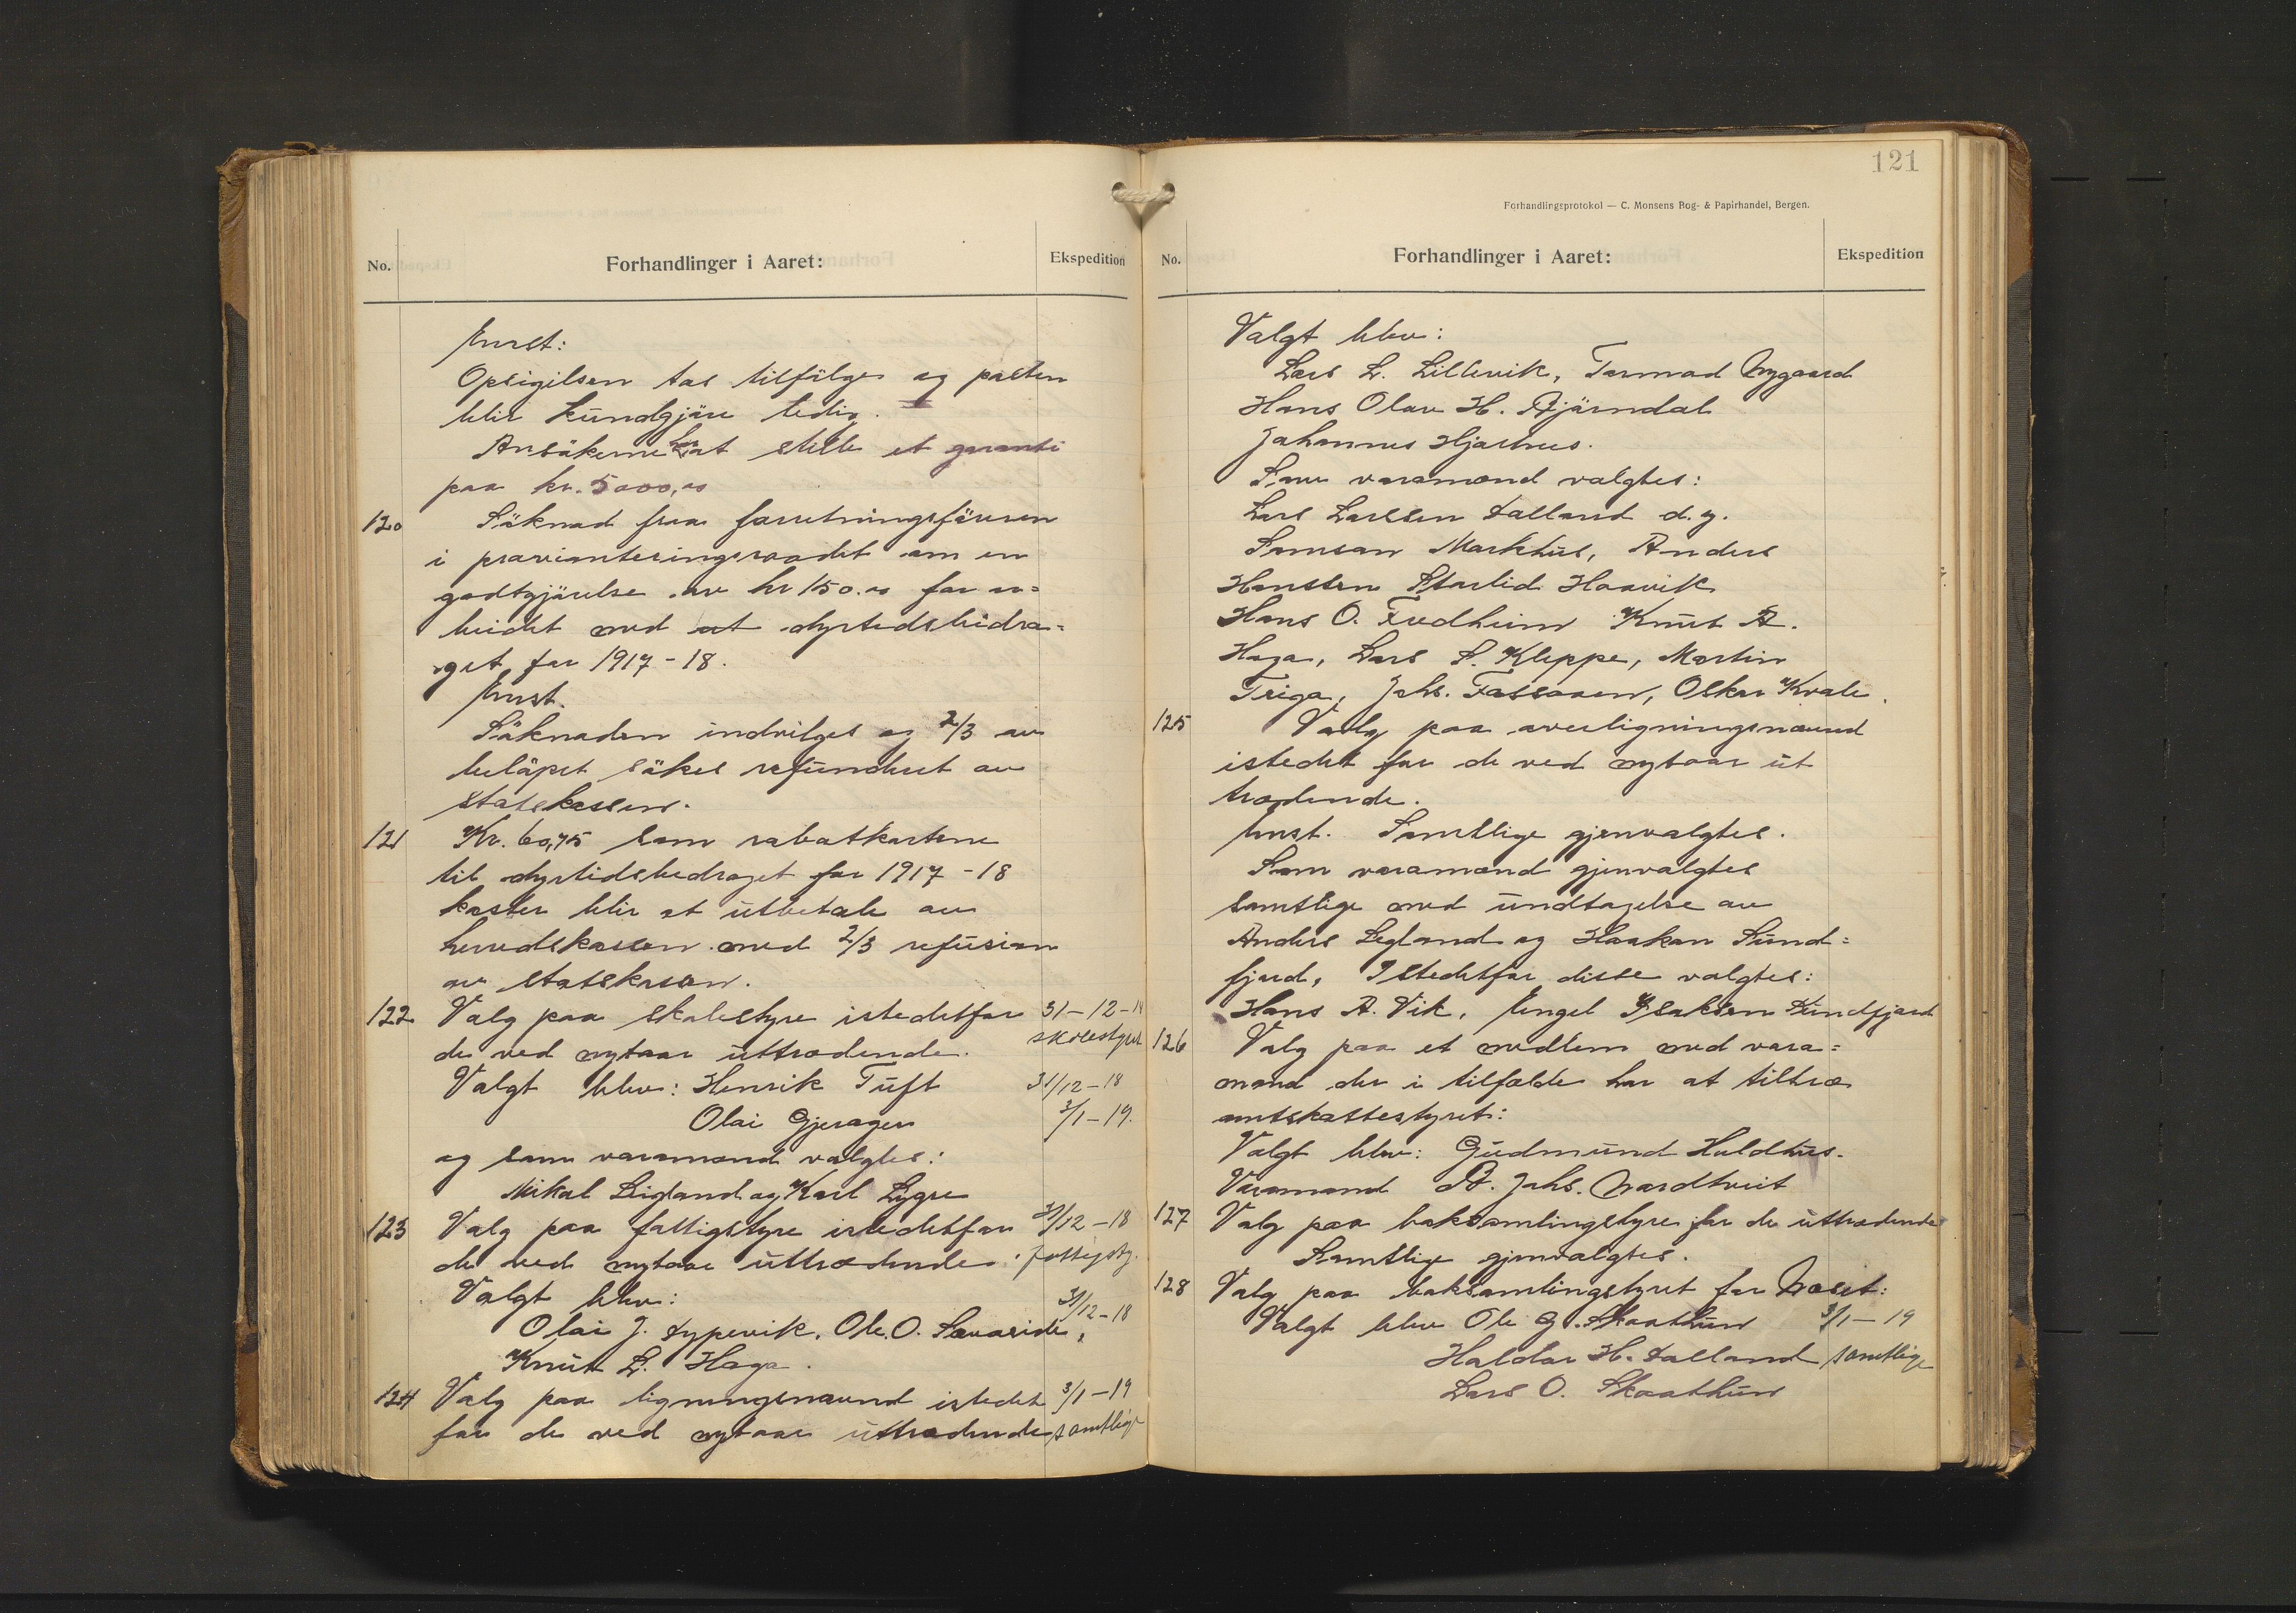 No.
Forhandlinger i Aaret:
Ekspedition
Enst:
Opsigilsen tas tilfölge og posten
blir kundgjöre ledig.
Ansökerne har at stille et garanti
paa kr. 5000,00
120 Söknad fraa forretningsföreren
i provianteringsraadet om en
godtgjörelse av kr 150.00 for ar=
beidet med at dyrtidsbidra=
get for 1917-18.
Enst.
Söknaden indvilges og 2/3 av
belöpet sökes refunderet av
statskassen.
121 Kr. 60,75 som rabatkortene
til dyrtidsbedraget for 1917-18
koster blir at utbetale av
herredskassen med 2/3 refusion
av statskassen.
122 Valg paa skolestyre istedetfor 31-12-18
de ved nytaar uttrædende. skolestyret
Valgt blev: Henrik Tuft 31/12-18
Olai Gjerager 3/1-19.
og som varamænd valgtes:
Mikal Ligland og Karl Lygre
123 Valg paa fattigstyre istedetfor 31/12-18
de ved nytaar uttrædende. fattigsty.
Valgt blev:
Olai J. Sypervik, Ole O. Sævareide, 31/12-18
Knut L. Haga.
124 Valg paa ligningsnævnd istedet 3/1-19
for de ved nytaar uttrædende samtlige
121
Forhandlingsprotokol — C. Monsens Bog- & Papirhandel, Bergen.
No.
Forhandlinger i Aaret:
Ekspedition
Valgt blev:
Lars L. Lillevik, Tormod Nygaard
Hans Olav H. Bjørndal
Johannes Hjartnes.
Som varamænd valgtes:
Lars Larsen Dalland d.y.
Samson Markhus, Anders
Hansten Haavik
Hans O. Fredheim Knut A.
Haga, Lars S. Kleppe, Martin
Teiga, Johs. Fossaaen, Oskar Kvale.
125 Valg paa overligningsnævnd
istedet for de ved nytaar ut
trædende.
Enst. Samtlige gjenvalgtes.
Som varamænd gjenvalgtes
samtlige med undtagelse av
Anders Legland og Haakon Sund=
fjord, Istedetfor disse valgtes:
Hans A. Vik, Engel Isaksen Sundfjord
126 Valg paa et medlem med vara=
mand der i tilfælde har at tiltræ
amtskattestyret:
Valgt blev: Gudmund Huldhus.
Varamand A. Johs. Nordtveit
127 Valg paa boksamlingstyre for de uttrædende
Samtlige gjenvalgtes.
128 Valg paa boksamlingstyret for Næset:
Valgt blev Ole G. Skaathun 3/1-19
Haldor H. Dalland samtlige
Lars O. Skaathun